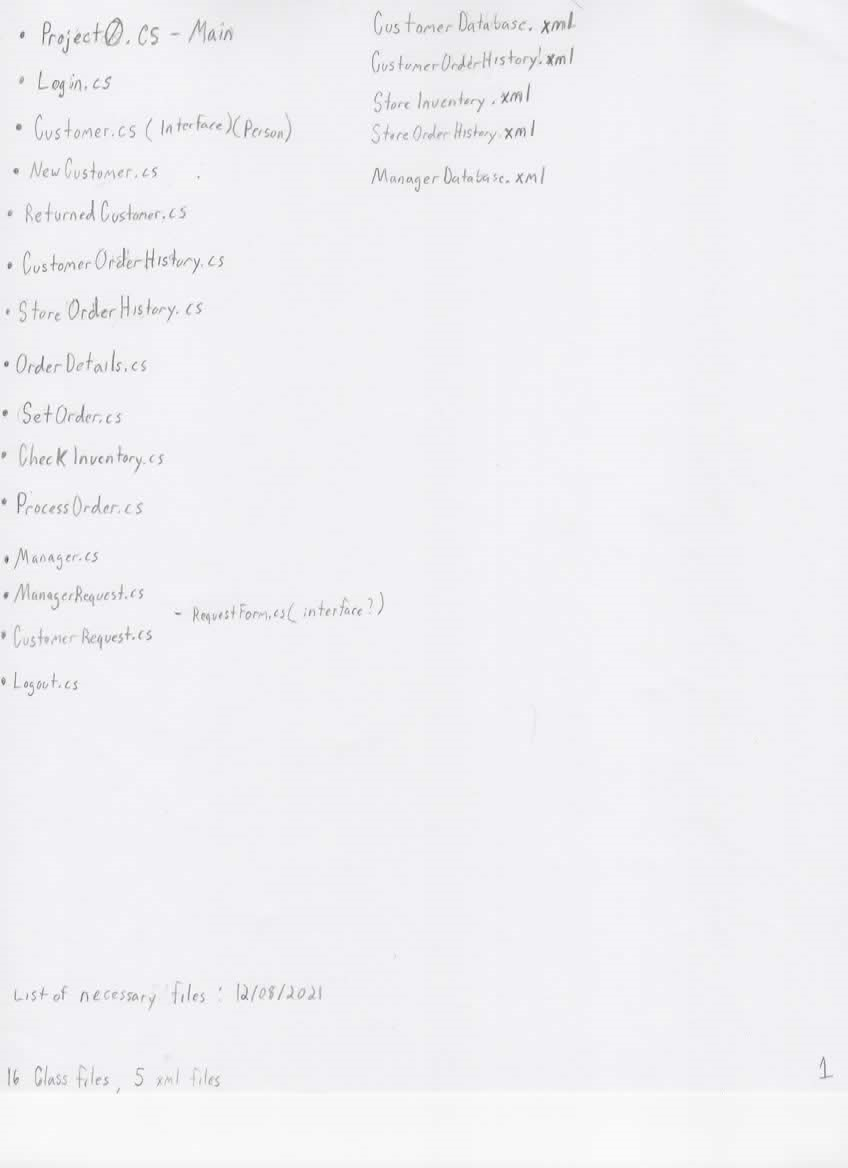 • Project0.CS - Main
• Login.cs
• Customer.cs (Interface)(Person)
• NewCustomer.cs
• ReturnedCustomer.cs
• CustomerOrderHistory.cs
• StoreOrderHistory.cs
• OrderDetails.cs
• SetOrder.cs
• CheckInventory.cs
• ProcessOrder.cs
• Manager.cs
• ManagerRequest.cs
- RequestForm.cs (interface?)
• CustomerRequest.cs
• Logout.cs
CustomerDatabase.xml
CustomerOrderHistory.xml
Store Inventory.xml
Store Order History.xml
ManagerDatabase.xml
List of necessary files : 12/08/2021
16 Class files, 5 xml files
1